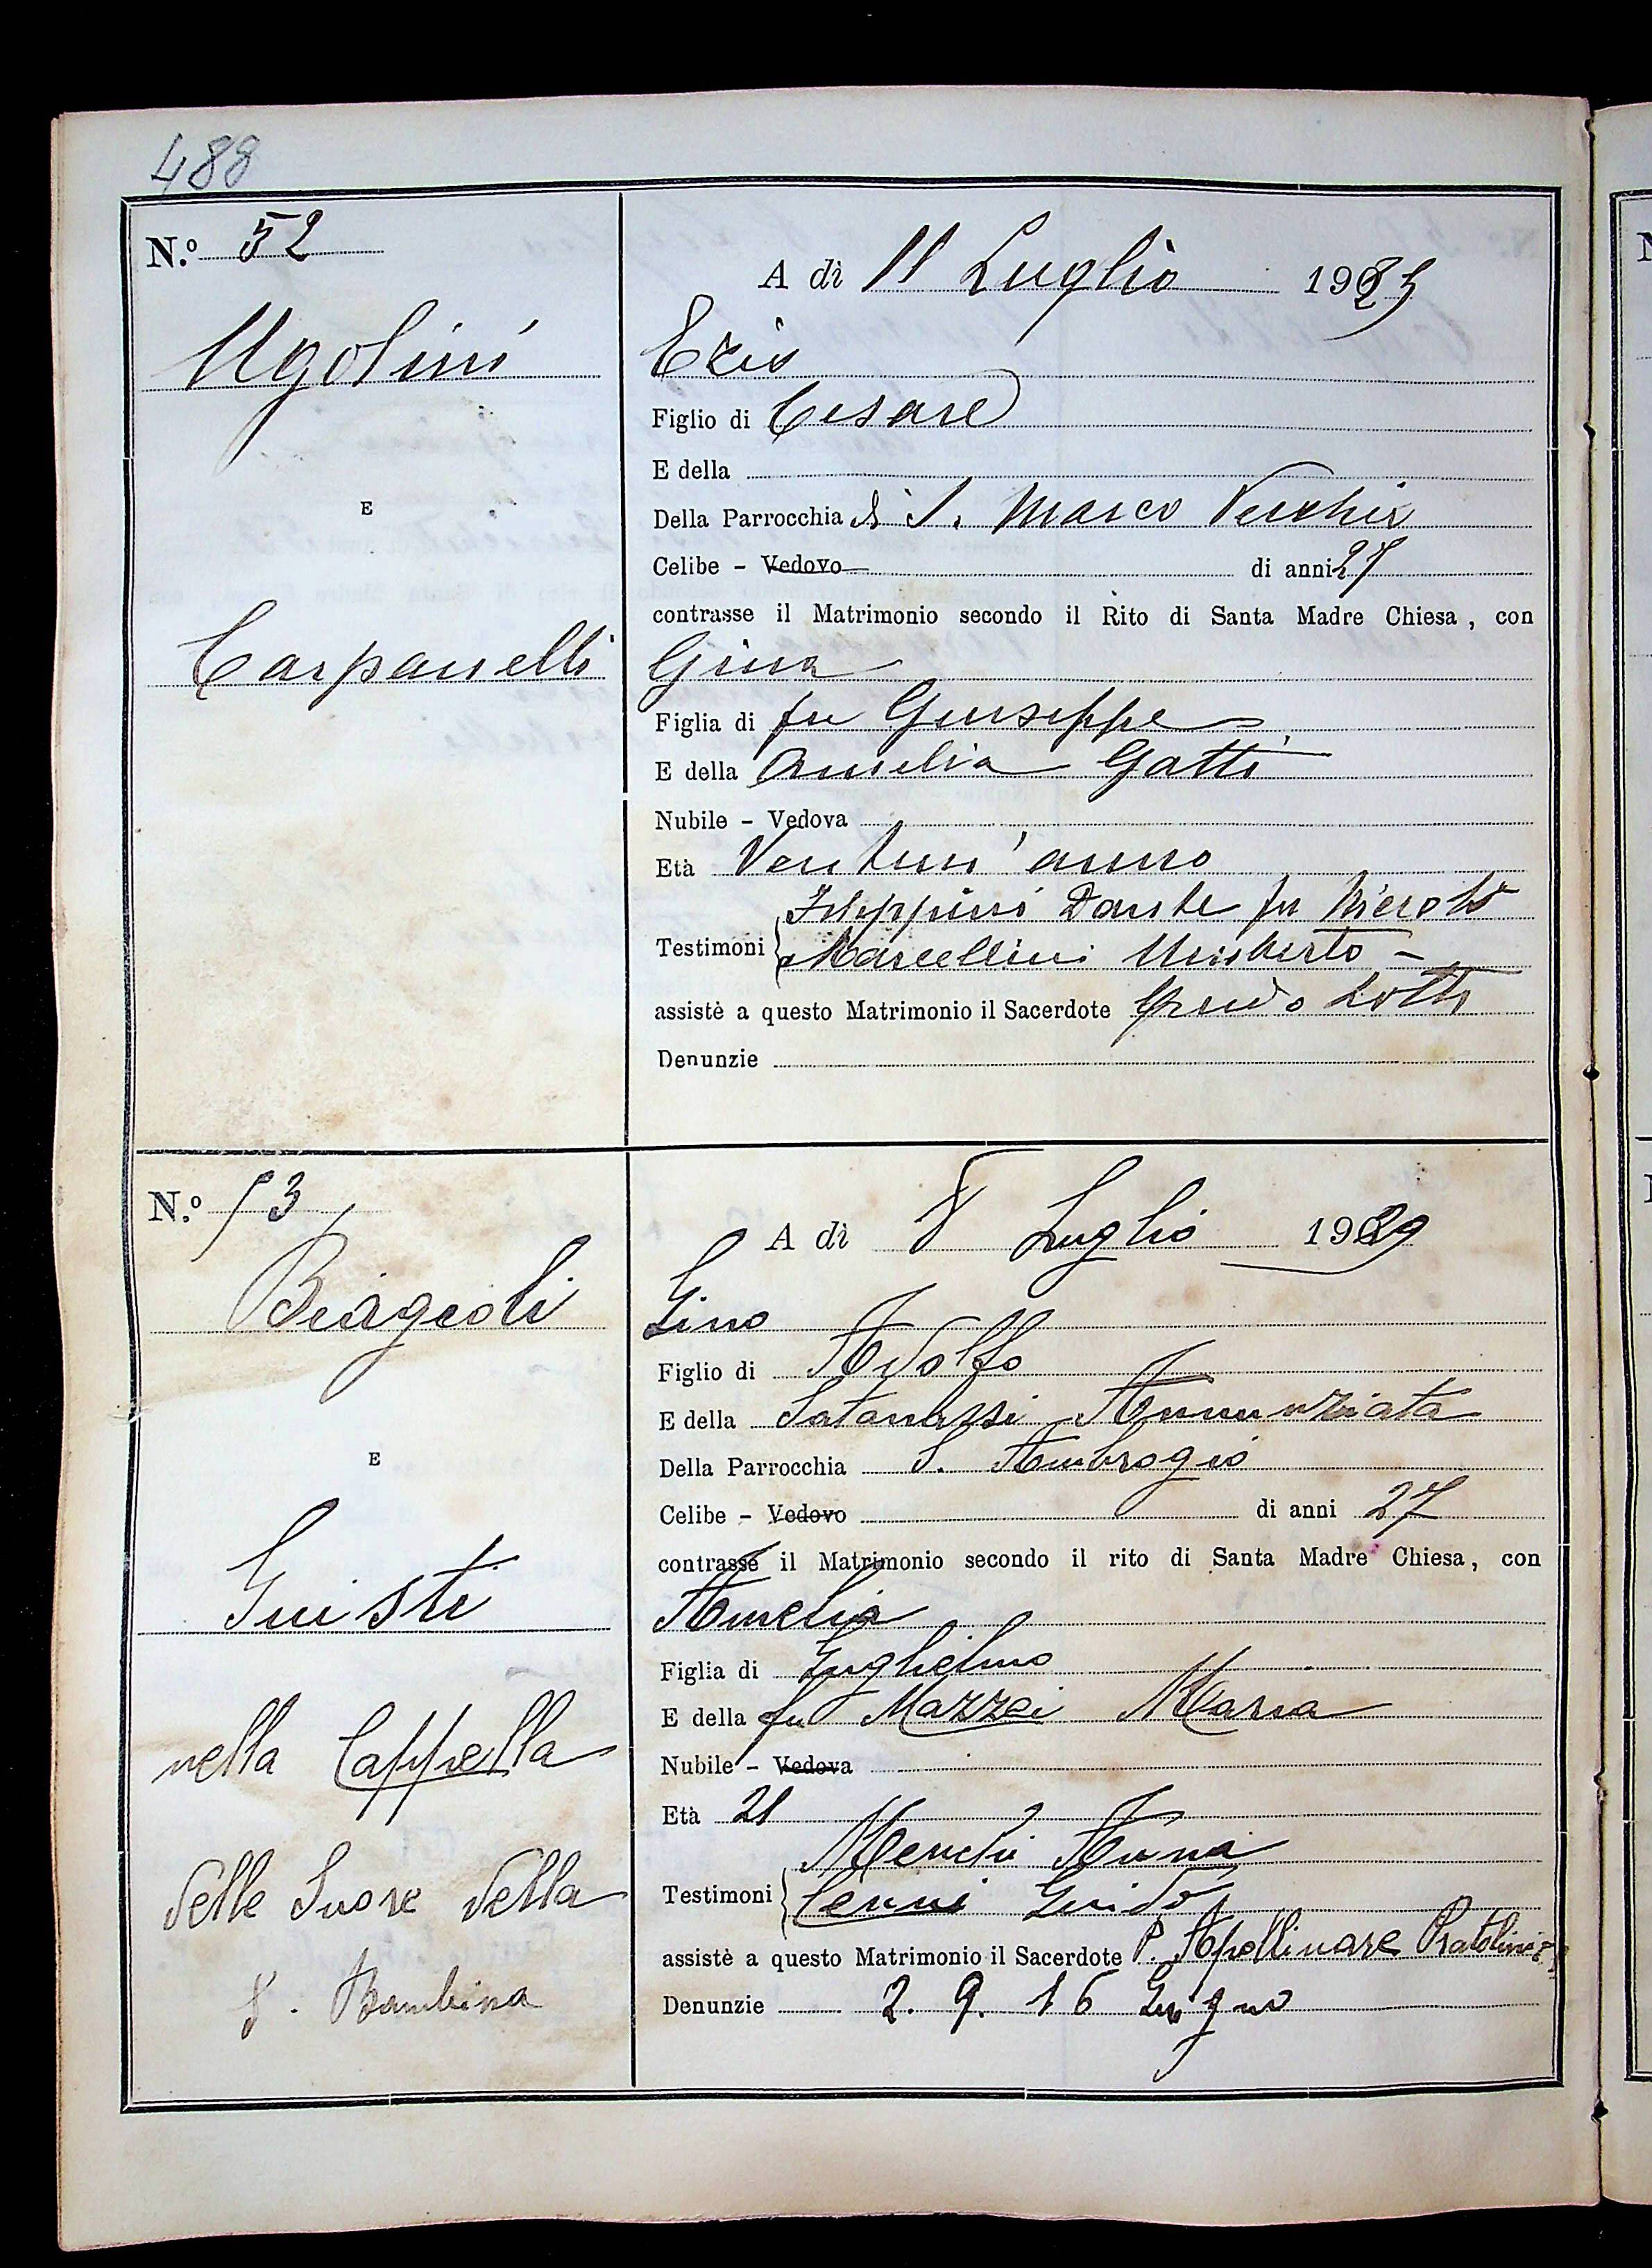 488
N.º 52
A dì 11 Luglio 1929
Ugolini
Ezio
Figlio di Cesare
E della
E
Della Parrocchia di S. Marco Vecchio
Celibe - Vedovo di anni 27
contrasse il Matrimonio secondo il Rito di Santa Madre Chiesa, con
Carpanelli
Gina
Figlia di fu Giuseppe
E della Amelia Gatti
Nubile - Vedova
Età Ventun' anno
Filippini Dante fu
Testimoni Marcellini Umberto -
assistè a questo Matrimonio il Sacerdote Guido Lotti
Denunzie
N.º 53
A dì 8 Luglio 1929
Biagioli
Gino
Figlio di Adolfo
E della Satanassi Annunziata
E
Della Parrocchia S. Ambrogio
Celibe - Vedovo di anni 27
contrasse il Matrimonio secondo il rito di Santa Madre Chiesa, con
Giusti
Amelia
Figlia di Guglielmo
E della fu Mazzei Maria
nella Cappella
Nubile - Vedova
Età 21
Anna
delle Suore della
Testimoni Cenni Guido
assistè a questo Matrimonio il Sacerdote P. Apollinare Pratolini
S. Bambina
Denunzie 2. 9. 16 Giugno